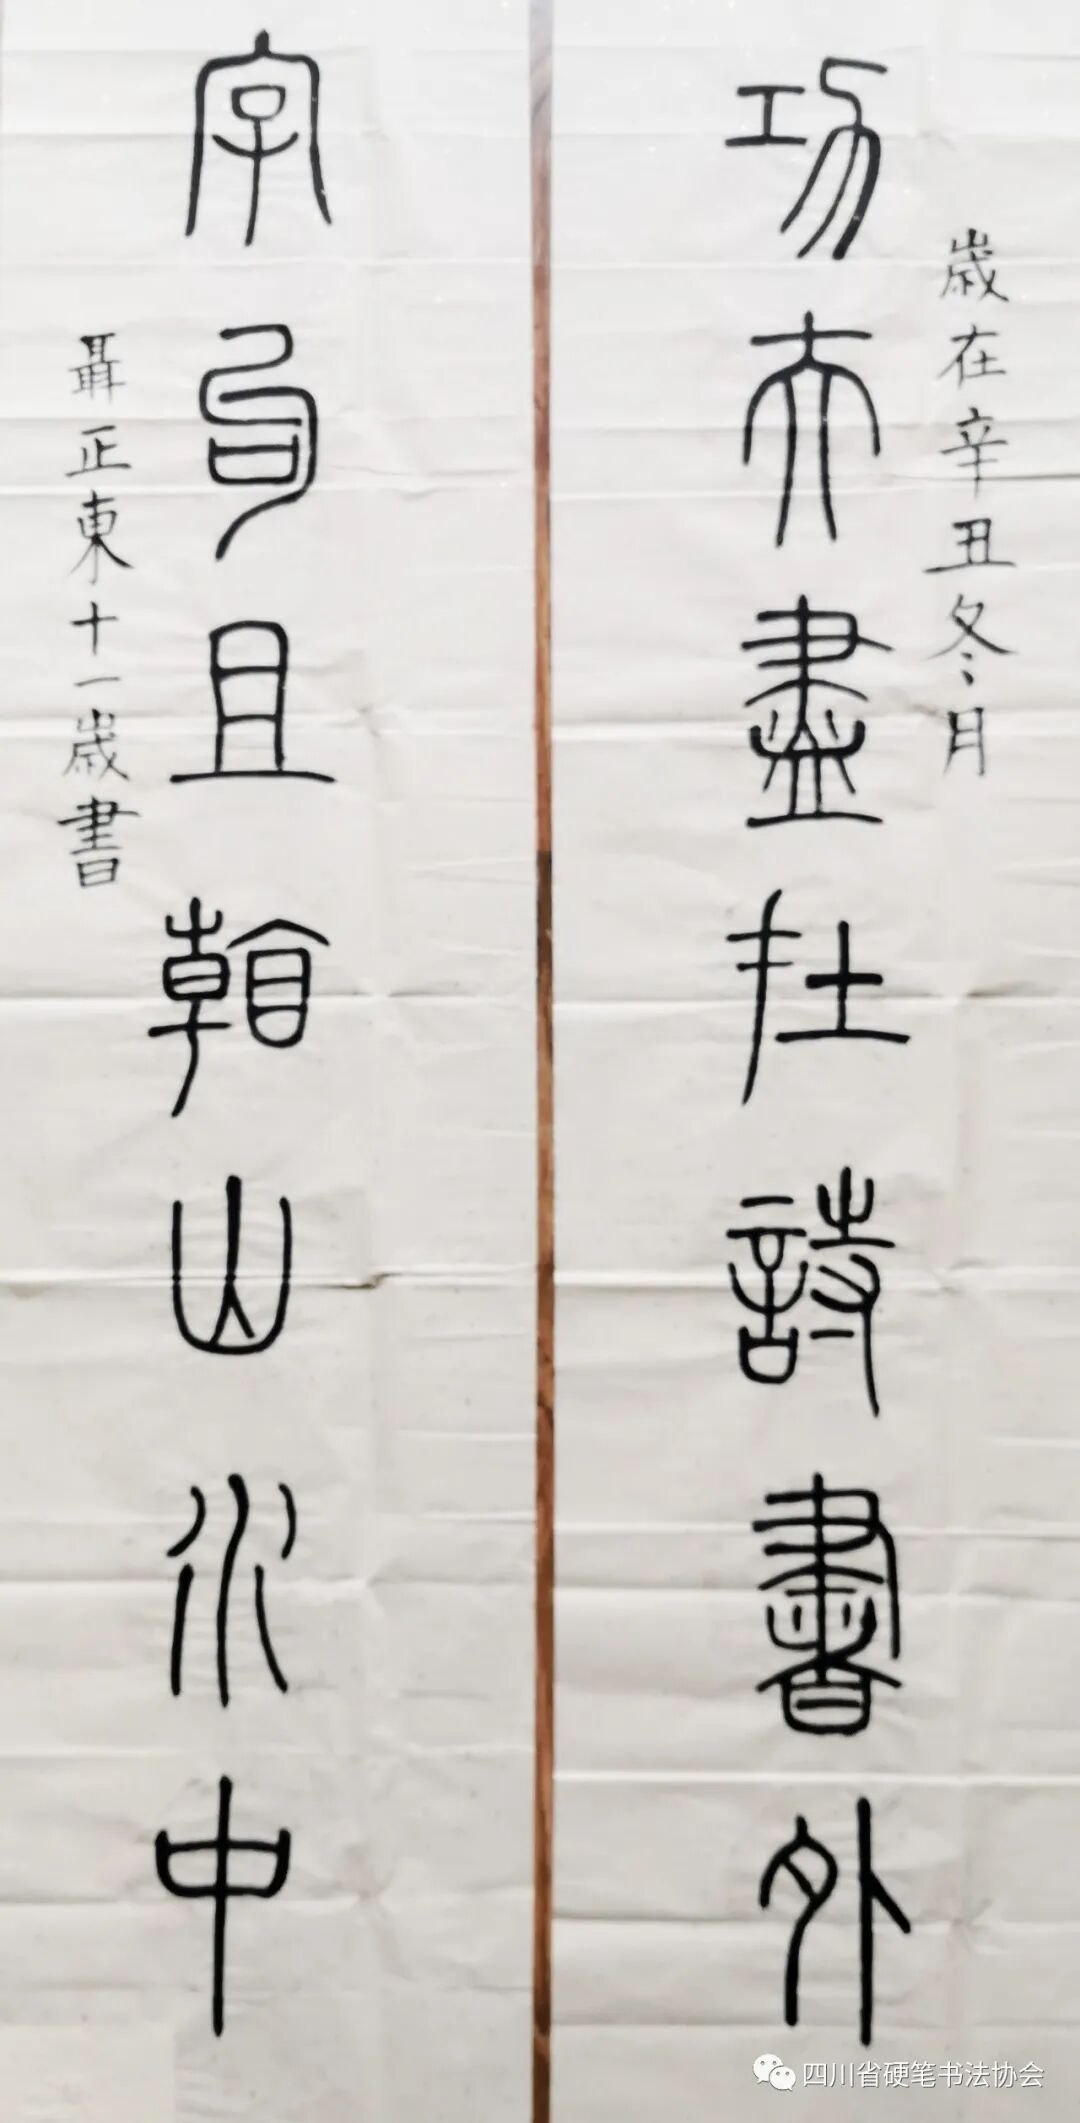 歲在辛丑冬月
功夫盡在詩書外
字句且朝山水中
聶正東十一歲書
四川省硬笔书法协会